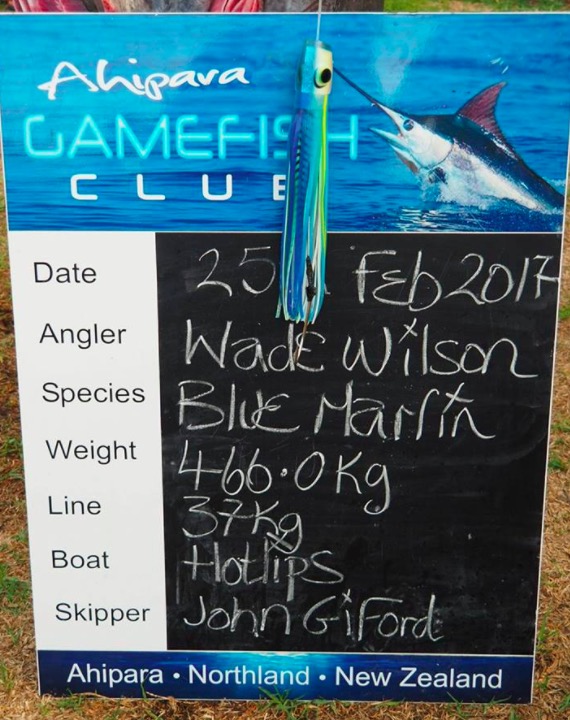 Ahipara
GAMEFISH
CLUB
Date 25 Feb 2017
Angler Wade Wilson
Species Blue Marlin
Weight 466.0 Kg
Line 37 Kg
Boat Hotlips
Skipper John Giford
Ahipara • Northland • New Zealand